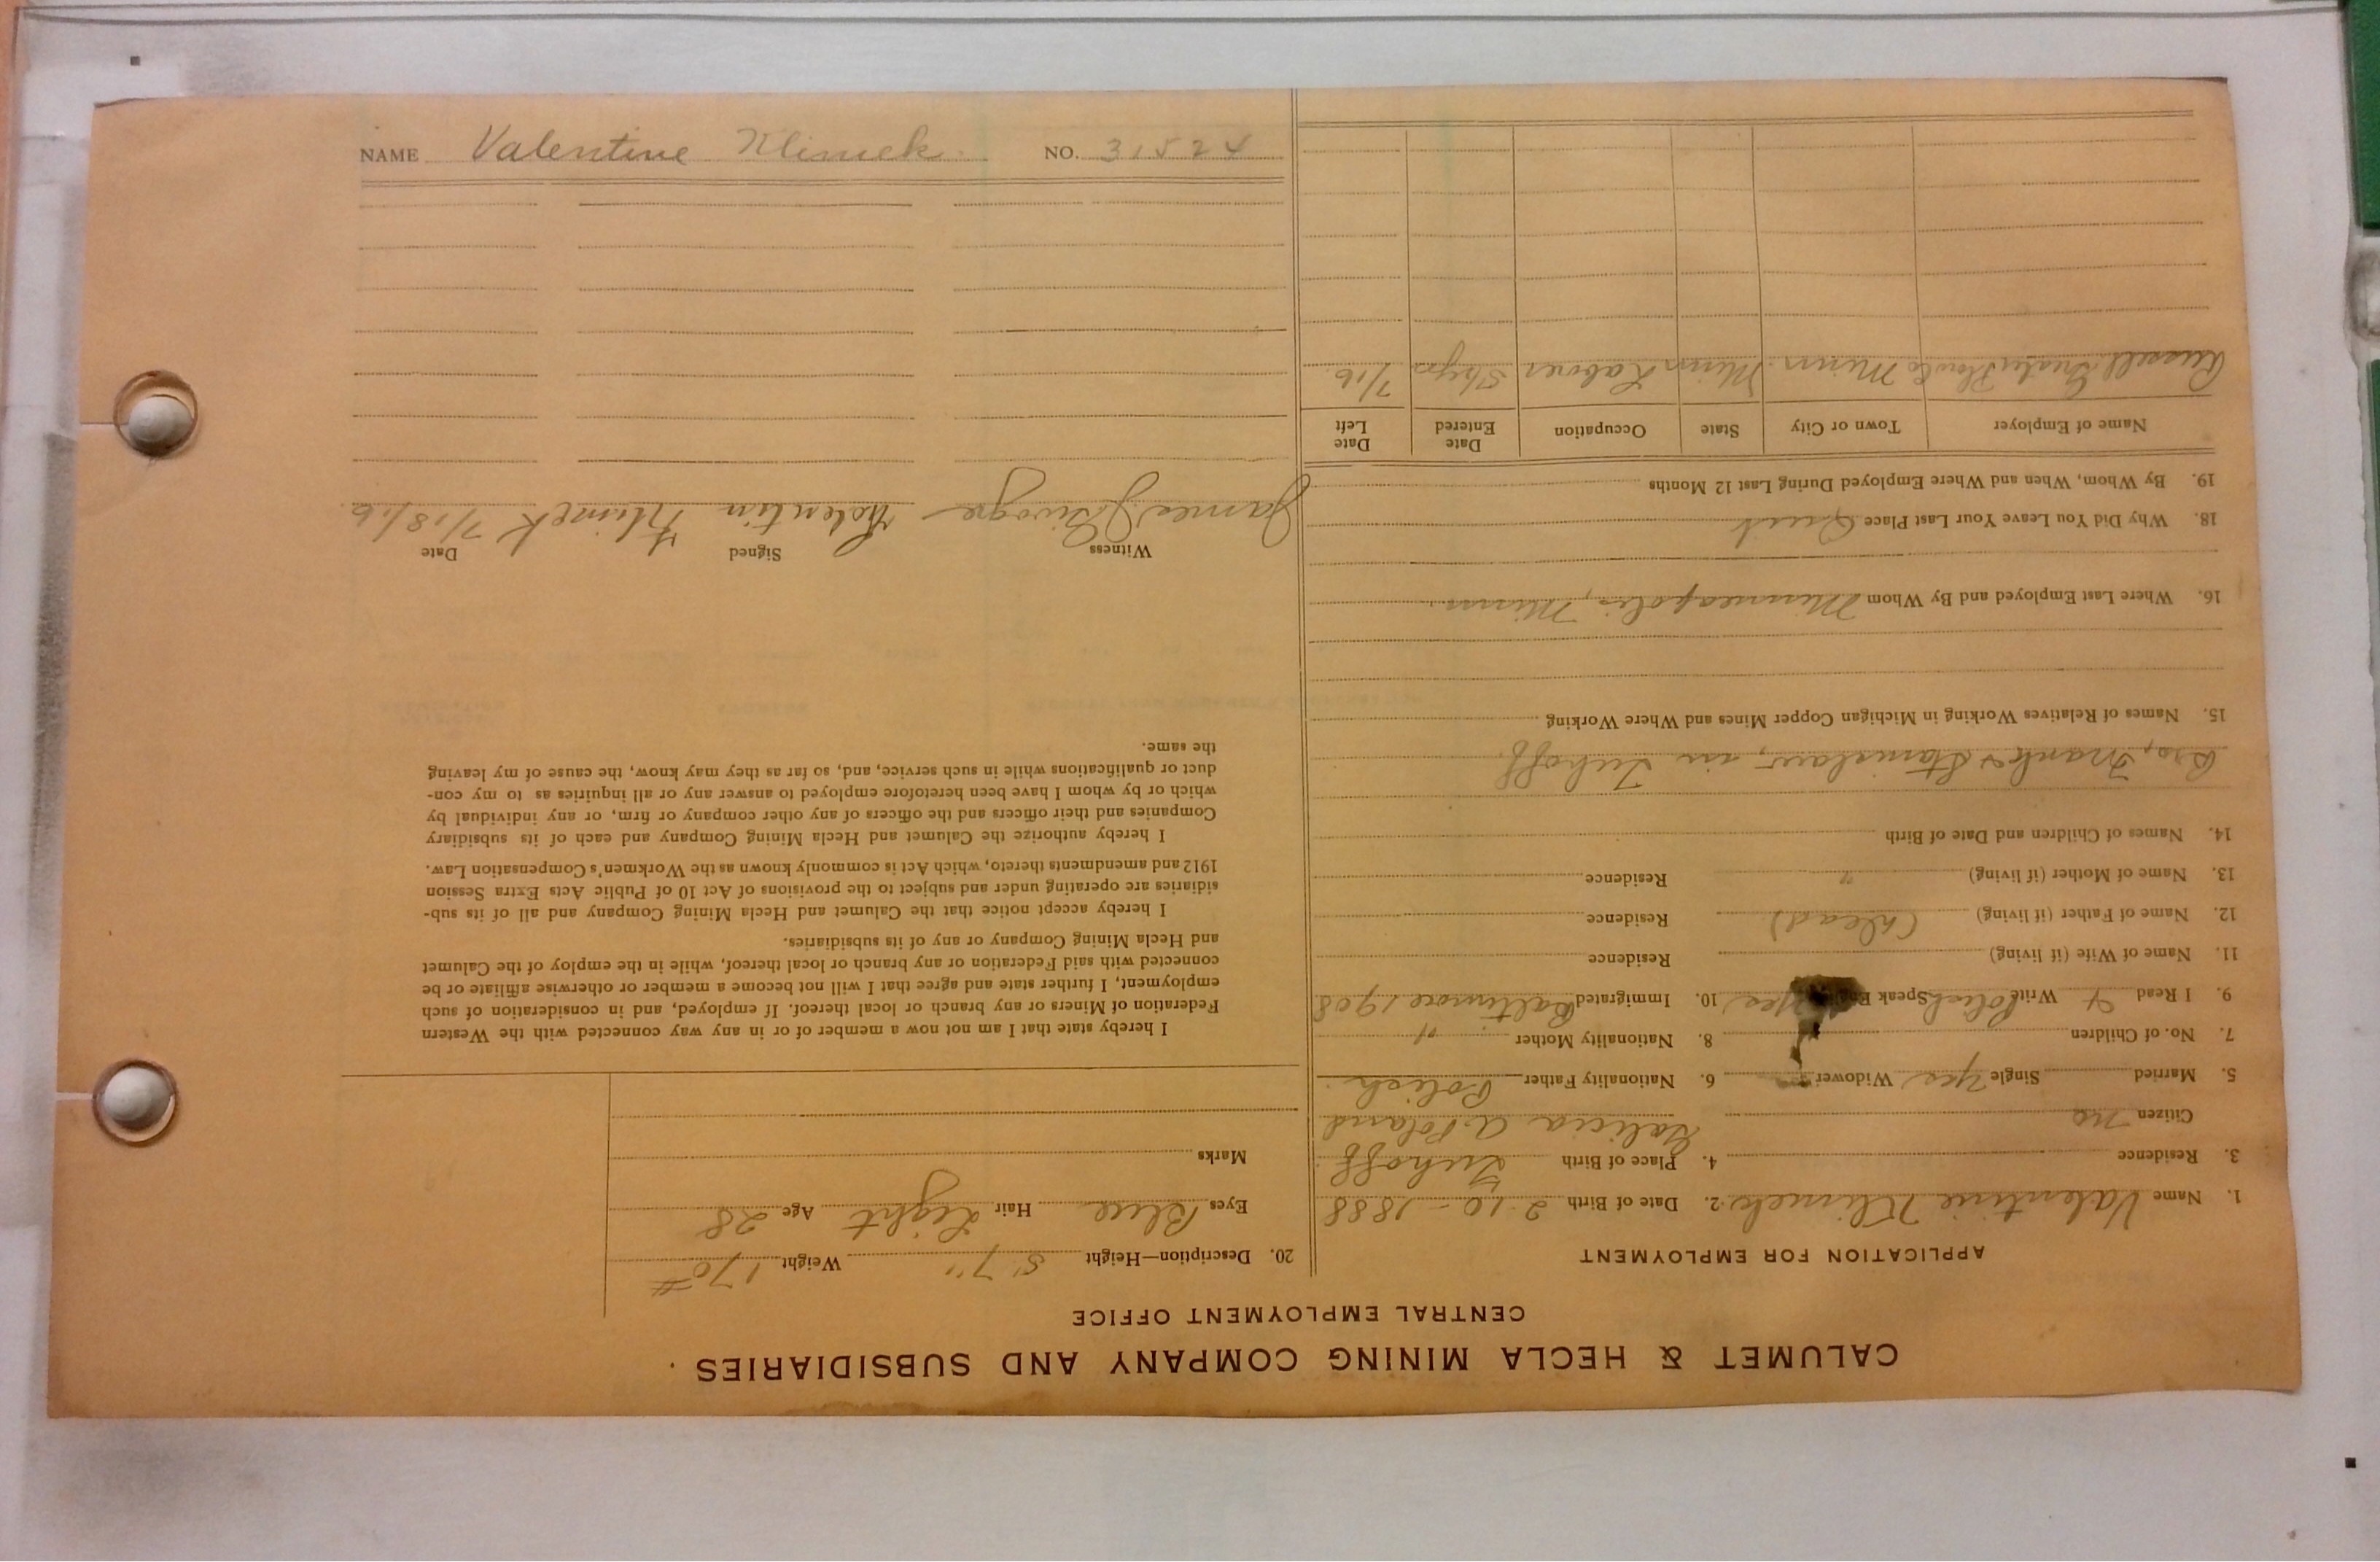 NAME Valentine Klimek NO. 31524
CALUMET & HECLA MINING COMPANY AND SUBSIDIARIES.
CENTRAL EMPLOYMENT OFFICE
APPLICATION FOR EMPLOYMENT
1. Name Valentine Klimek 2. Date of Birth 2-10-1888
3. Residence 4. Place of Birth
Citizen no Galicia a. Poland
5. Married Single Yes Widower 6. Nationality Father Polish
7. No. of Children 8. Nationality Mother "
9. I Read & Write Polish Speak Yes 10. Immigrated Baltimore 1908
11. Name of Wife (if living) Residence
12. Name of Father (if living) (Dead) Residence
13. Name of Mother (if living) " Residence
14. Names of Children and Date of Birth
Bro, Frank & Stanislaw, in
15. Names of Relatives Working in Michigan Copper Mines and Where Working
16. Where Last Employed and By Whom Minneapolis, Minn
18. Why Did You Leave Your Last Place Quit
19. By Whom, When and Where Employed During Last 12 Months
Name of Employer Town or City State Occupation Date Entered Date Left
Russell Minn. Minn Laborer 7/16
20. Description—Height 5'7" Weight 170#
Eyes Blue Hair Light Age 28
Marks
I hereby state that I am not now a member of or in any way connected with the Western
Federation of Miners or any branch or local thereof. If employed, and in consideration of such
employment, I further state and agree that I will not become a member or otherwise affiliate or be
connected with said Federation or any branch or local thereof, while in the employ of the Calumet
and Hecla Mining Company or any of its subsidiaries.
I hereby accept notice that the Calumet and Hecla Mining Company and all of its sub-
sidiaries are operating under and subject to the provisions of Act 10 of Public Acts Extra Session
1912 and amendments thereto, which Act is commonly known as the Workmen's Compensation Law.
I hereby authorize the Calumet and Hecla Mining Company and each of its subsidiary
Companies and their officers and the officers of any other company or firm, or any individual by
which or by whom I have been heretofore employed to answer any or all inquiries as to my con-
duct or qualifications while in such service, and, so far as they may know, the cause of my leaving
the same.
Witness Signed Date
James J. Valentin Klimek 7/18/16.